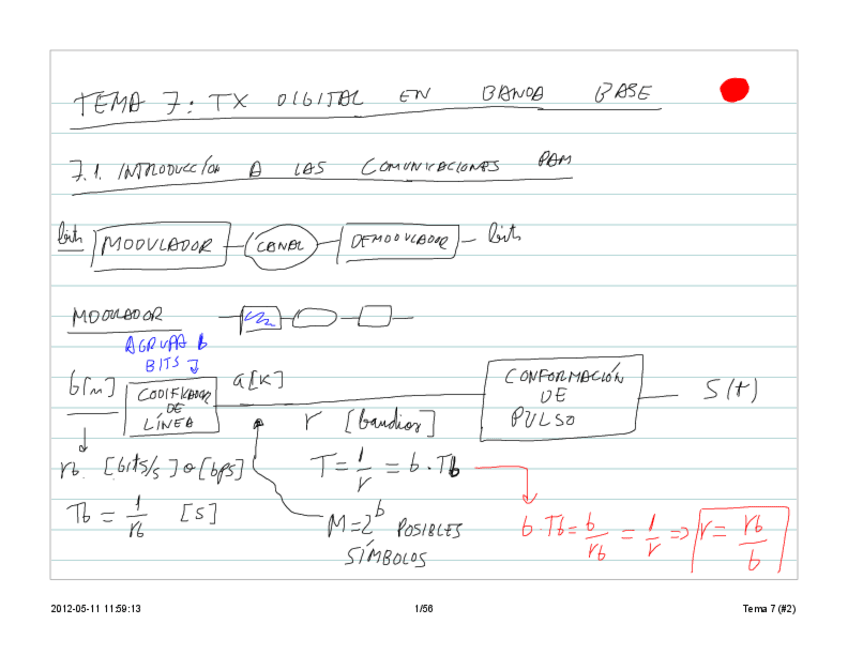 TEMA 7: TX DIGITAL EN BANDA BASE
7.1. INTRODUCCIÓN A LAS COMUNICACIONES PAM
bits MODULADOR CANAL DEMODULADOR bits
MODULADOR
AGRUPA b
BITS
b[n] CODIFICADOR DE LÍNEA a[k] CONFORMACIÓN DE PULSO S(t)
r [baudios]
rb [bits/s] o [bps] T = 1/r = b·Tb
Tb = 1/rb [s] M = 2^b POSIBLES b·Tb = b/rb = 1/r => r = rb/b
SÍMBOLOS
2012-05-11 11:59:13 1/56 Tema 7 (#2)